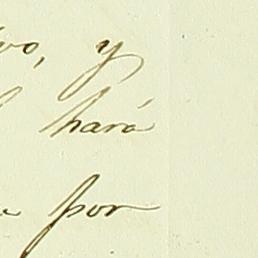 vo, y
hará
por